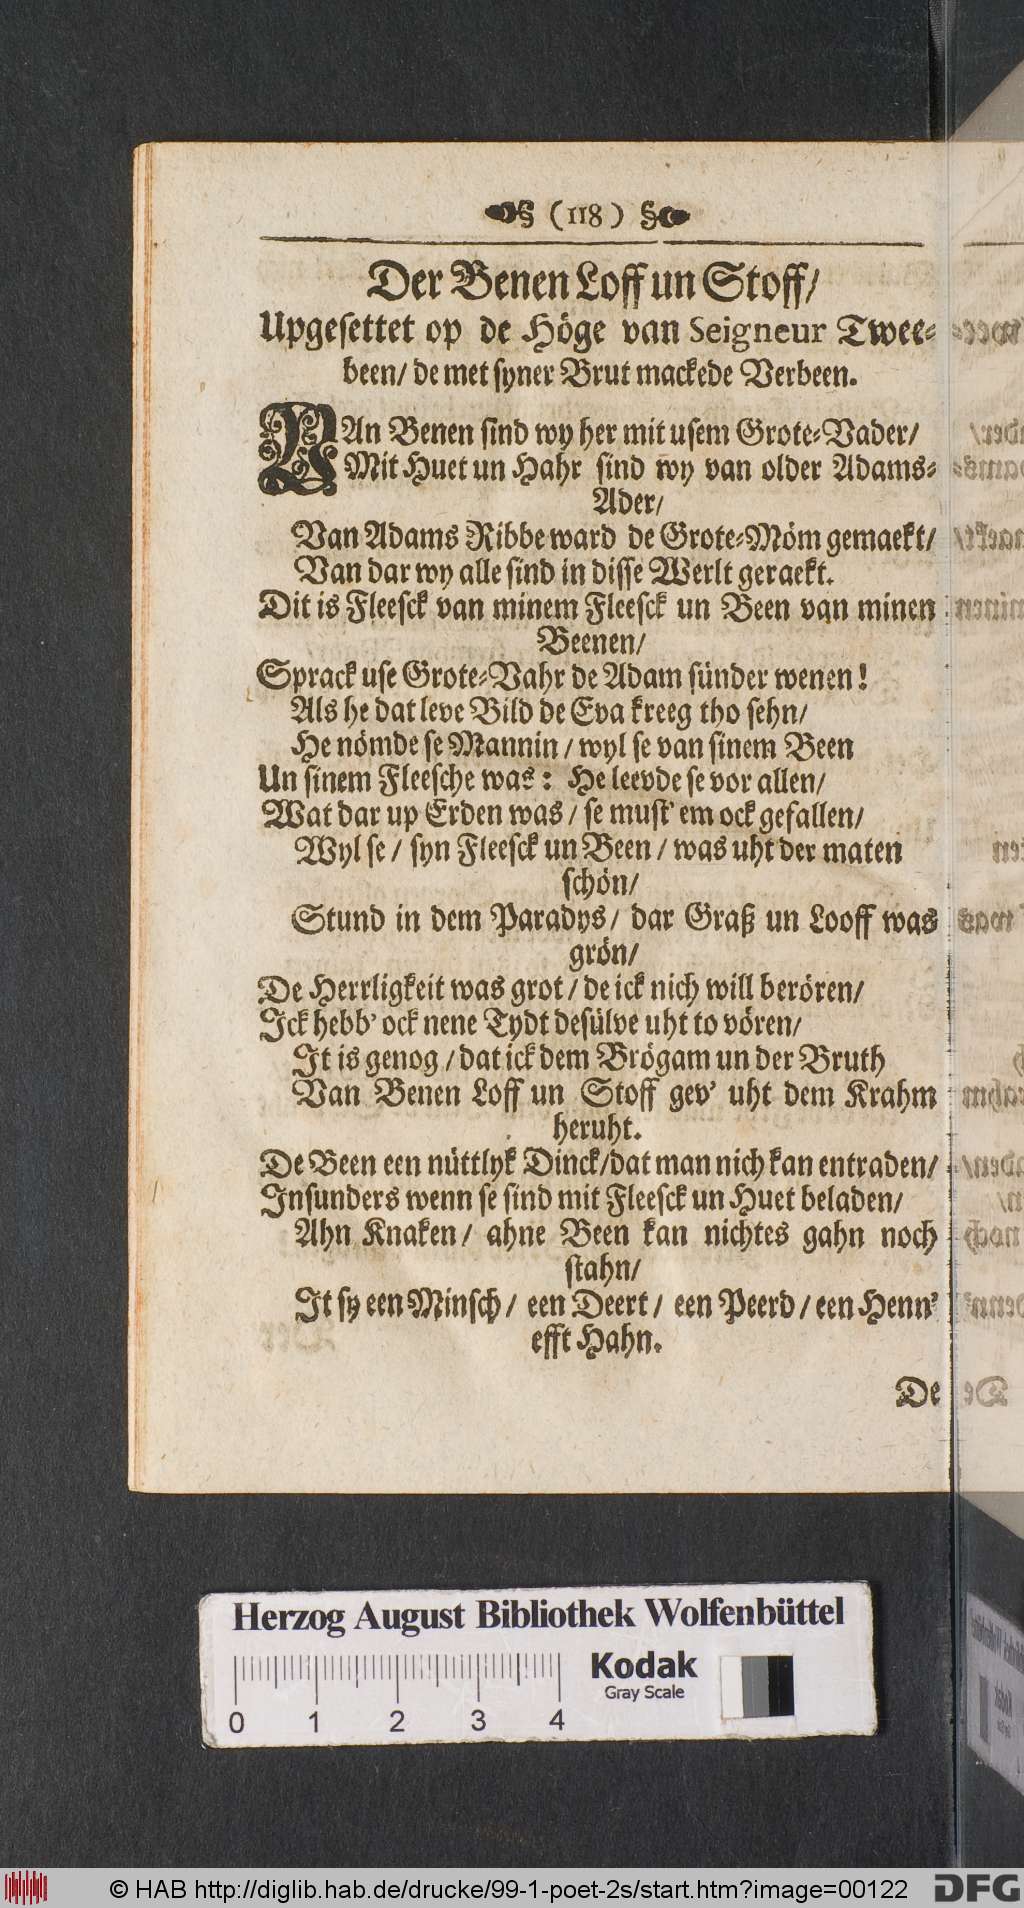 (118)
Der Benen Loff un Stoff/
Upgesettet op de Höge van Seigneur Twee-
been/ de met syner Brut mackede Verbeen.
VAn Benen sind wy her mit usem Grote-Vader/
Mit Huet un Hahr sind wy van older Adams-
Ader/
Van Adams Ribbe ward de Grote-Möm gemaekt/
Van dar wy alle sind in disse Werlt geraekt.
Dit is Fleesck van minem Fleesck un Been van minen
Beenen/
Sprack use Grote-Vahr de Adam sünder wenen!
Als he dat leve Bild de Eva kreeg tho sehn/
He nömde se Mannin/ wyl se van sinem Been
Un sinem Fleesche was: He leevde se vor allen/
Wat dar up Erden was/ se must' em ock gefallen/
Wyl se/ syn Fleesck un Been/ was uht der maten
schön/
Stund in dem Paradys/ dar Graß un Looff was
grön/
De Herrligkeit was grot/ de ick nich will berören/
Ick hebb' ock nene Tydt desülve uht to vören/
It is genog/ dat ick dem Brögam un der Bruth
Van Benen Loff un Stoff gev' uht dem Krahm
heruht.
De Been een nüttlyk Dinck/ dat man nich kan entraden/
Insunders wenn se sind mit Fleesck un Huet beladen/
Ahn Knaken/ ahne Been kan nichtes gahn noch
stahn/
It sy een Minsch/ een Deert/ een Peerd/ een Henn'
efft Hahn.
De
Herzog August Bibliothek Wolfenbüttel
Kodak
Gray Scale
0 1 2 3 4
© HAB http://diglib.hab.de/drucke/99-1-poet-2s/start.htm?image=00122
DFG